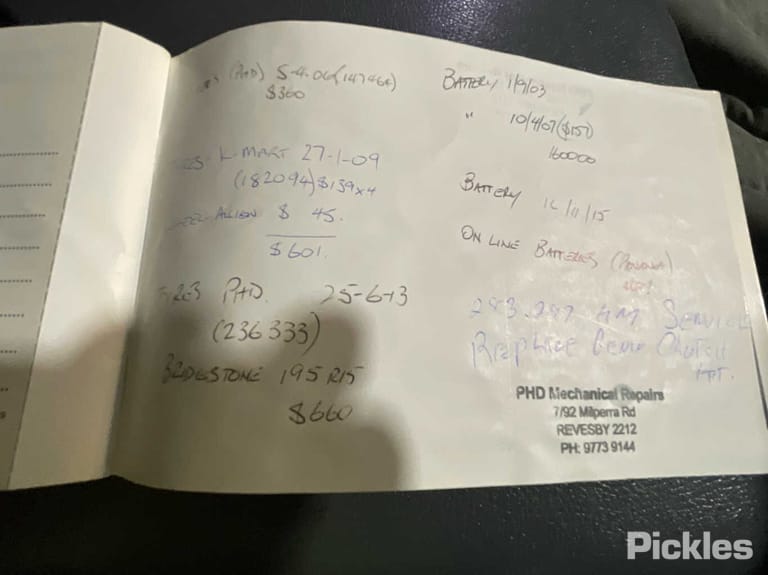 (PHD) 5-4-06 (147464)
$360
K-MART 27-1-09
(182094) $139x4
ALIGN $ 45.
$601.
TYRES PHD. 25-6-13
(236333)
BRIDGESTONE 195 R15
$660
BATTERY 1/9/03
" 10/4/07 ($157)
160000
BATTERY 16/11/15
ON LINE BATTERIES
283.287 KM SERVICE
Replace Clutch
PHD Mechanical Repairs
7/92 Milperra Rd
REVESBY 2212
PH: 9773 9144
Pickles